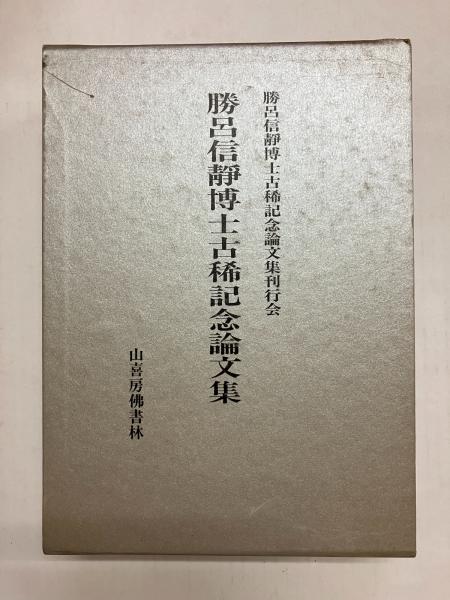 勝呂信靜博士古稀記念論文集刊行会
勝呂信靜博士古稀記念論文集
山喜房佛書林